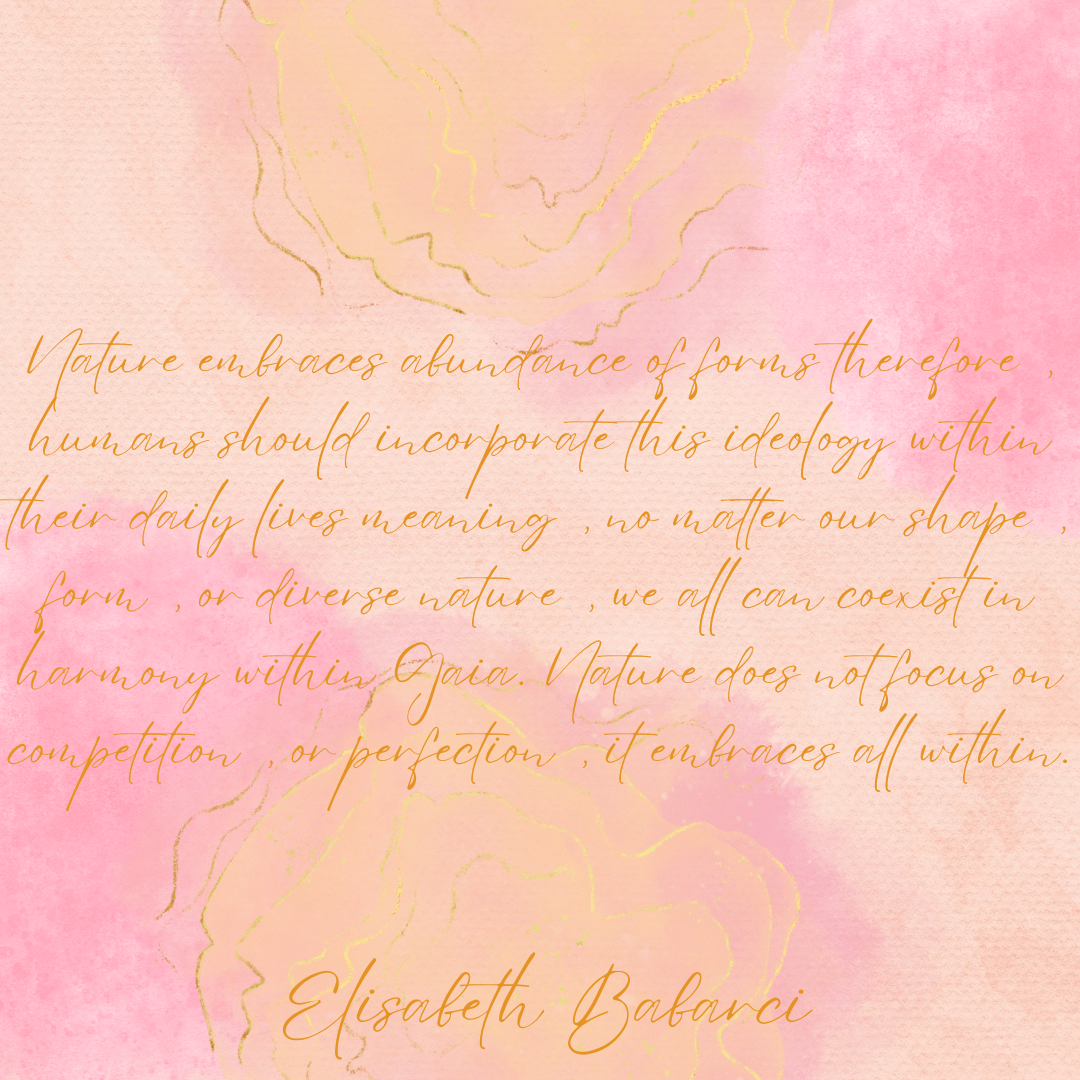 Nature embraces abundance of forms therefore ,
humans should incorporate this ideology within
their daily lives meaning , no matter our shape ,
form , or diverse nature , we all can coexist in
harmony within Gaia. Nature does not focus on
competition , or perfection , it embraces all within.
Elisabeth Babarci